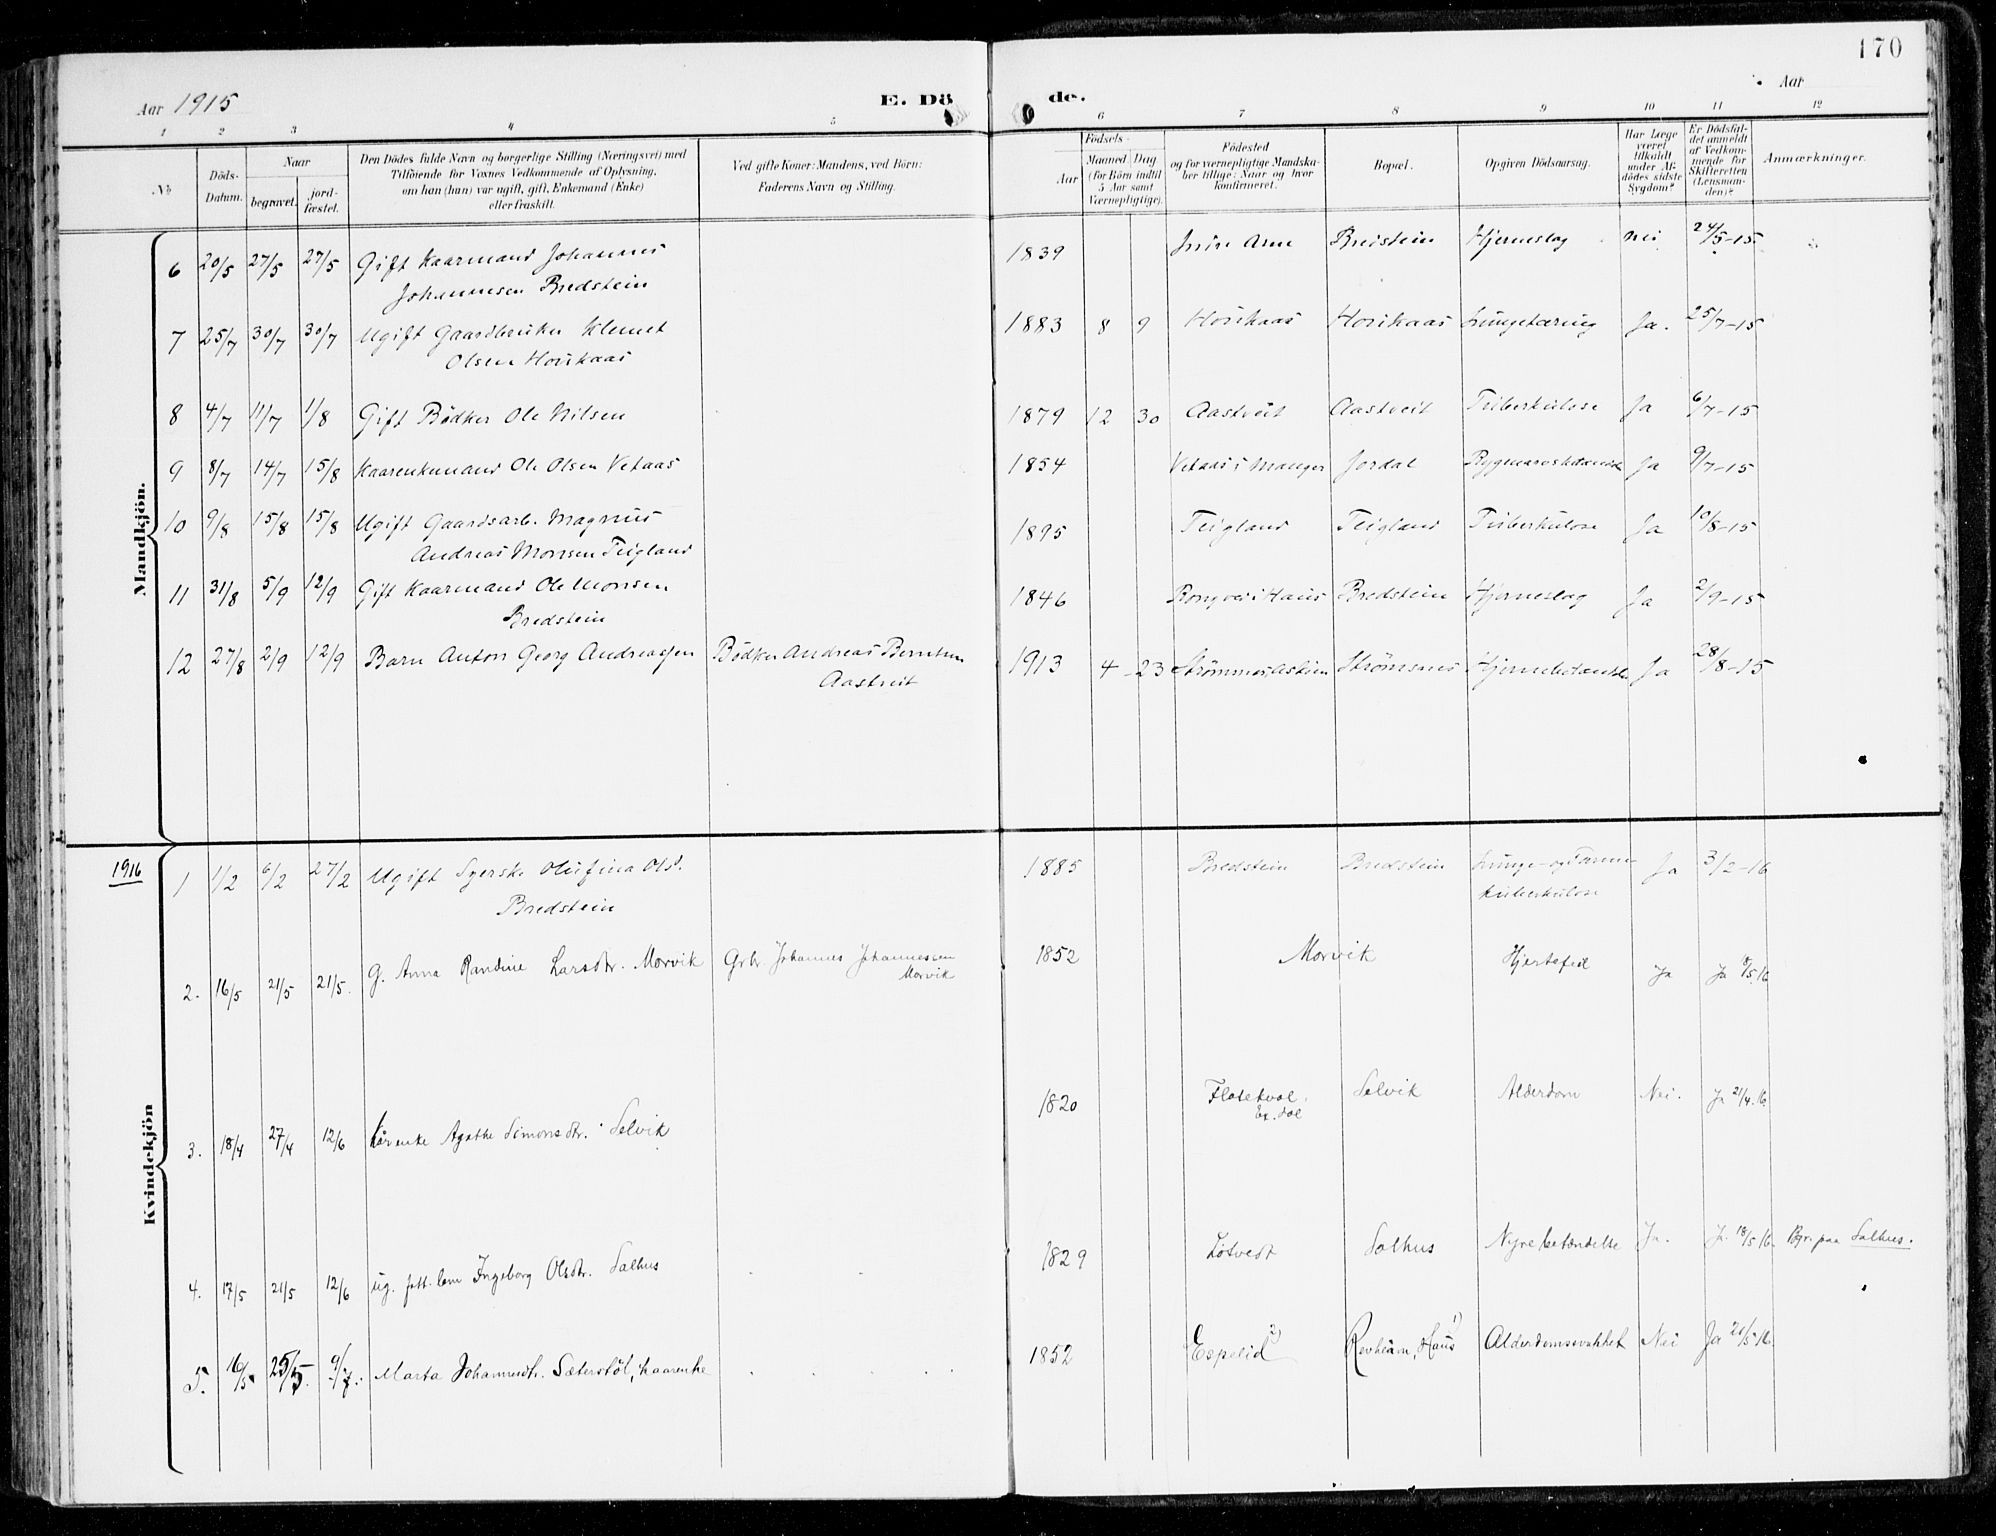 170
Aar 1915
E. Dö
de.
Aar
1 2 3 4 5 6 7 8 9 10 11 12
№
Döds-Datum.
Naar
begravet.
jord-fæstet.
Den Dödes fulde Navn og borgerlige Stilling (Næringsvei) med
Tilföiende for Voxnes Vedkommende af Oplysning,
om han (hun) var ugift, gift, Enkemand (Enke)
eller fraskilt.
Ved gifte Koner: Mandens, ved Börn:
Faderens Navn og Stilling.
Födsels-
Aar
Maaned Dag
(for Börn indtil
5 Aar samt
Værnepligtige).
Födested
og for værnepligtige Mandska-
ber tillige: Naar og hvor
konfirmeret.
Bopæl.
Opgiven Dödsaarsag.
Har Læge
været
tilkaldt
under Af-
dödes sidste
Sygdom?
Er Dödsfal-
det anmeldt
af Vedkom-
mende for
Skifteretten
(Lensman-
den)?
Anmærkninger.
Mandkjön.
6 20/5 27/5 27/5 Gift Kaarmand Johannes 1839 Indre Arne Bredstein Hjerneslag nei 24/5-15
Johannesen Bredstein
7 25/7 30/7 30/7 Ugift Gaardbruker Klemet 1883 8 9 Horikaas Horikaas Lungetæring Ja. 25/7-15
Olsen Horikaas
8 4/7 11/7 1/8 Gift Bödker Ole Nilsen 1879 12 30 Aastveit Aastveit Tuberkulose Ja 6/7-15
9 8/7 14/7 15/8 Kaarenkemand Ole Olsen Vetaas 1854 Vetaas i Manger Jordal Ja 9/7-15
10 9/8 15/8 15/8 Ugift Gaardsarb. Magnus 1895 Teigland Teigland Tuberkulose Ja 10/8-15
Andreas Monsen Teigland
11 31/8 5/9 12/9 Gift Kaarmand Ole Monsen 1846 i Haus Bredstein Hjerneslag Ja 2/9-15
Bredstein
12 27/8 2/9 12/9 Barn Anton Georg Andreassen Bödker Andreas Berntsen 1913 4 - 23 Strömsnes Hjernebetændelse Ja 28/8-15
Aastveit
Kvindekjön
1916
1 1/2 6/2 27/2 Ugift Syerske Olufina Olsd. 1885 Bredstein Bredstein Lunge- og Tarm- Ja 3/2-16
Bredstein tuberkulose
2. 16/5 21/5 21/5. G. Anna Randine Larsdtr. Morvik Grbr. Johannes Johannessen 1852 Morvik Hjertefeil Ja Ja /5.16
Morvik
3. 18/4 27/4 12/6 Kårenke Agathe Simonsdtr. Selvik 1820 Selvik Alderdom Nei. Ja 21/4.16.
4. 17/5 21/5 12/6 ug. fatt.lem Ingeborg Olsdtr. Salhus 1829 Totvedt Salhus Nyrebetændelse Ja. Ja 18/5 16. Bgr. paa Salhus.
5. 16/5 25/5. 9/7. Marta Johannesdtr. Sæterstöl, kaarenke 1852 Espelid 2) Revheim, Haus 1) Alderdomssvakhet Nei Ja 20/5 16.